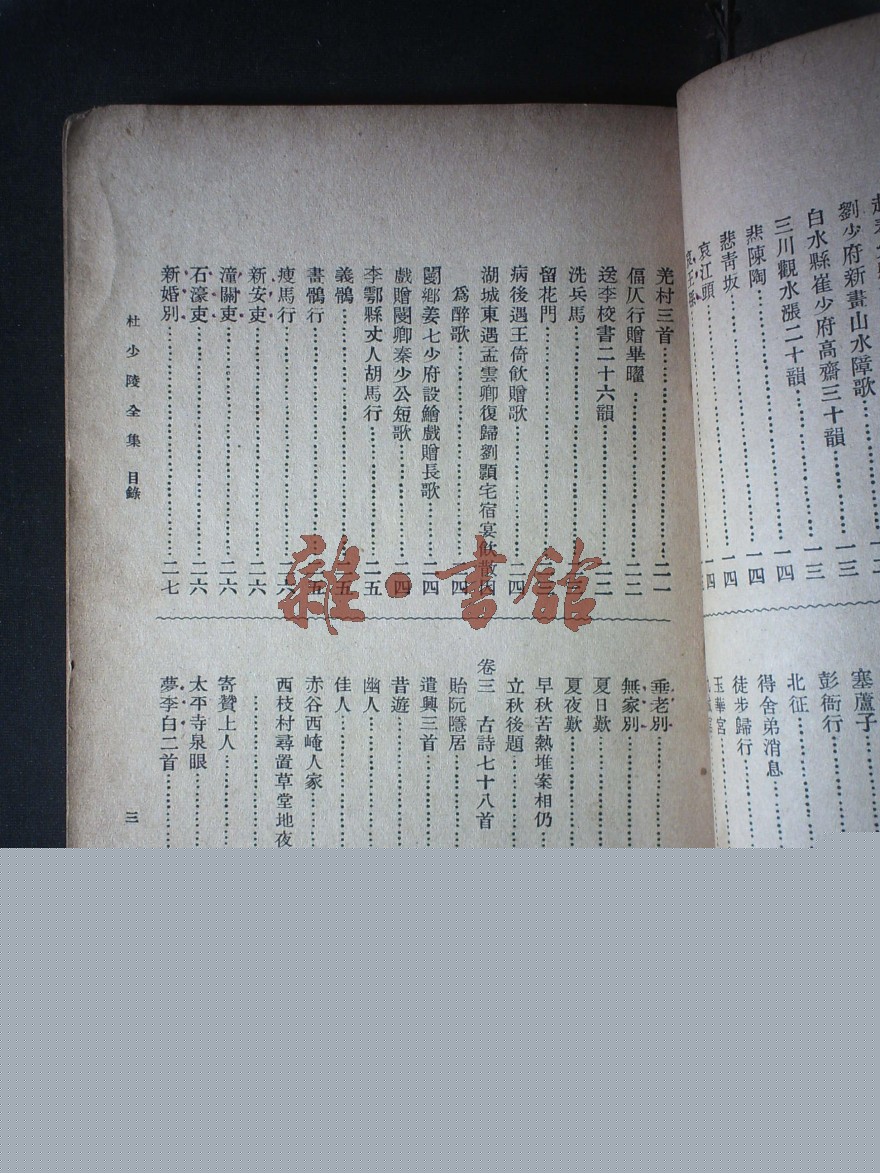 劉少府新畫山水障歌
白水縣崔少府高齋三十韻……一三
三川觀水漲二十韻……一四
悲陳陶……一四
悲青坂……一四
哀江頭……一四
塞蘆子
彭衙行
北征
得舍弟消息
徒步歸行
玉華宮
羌村三首……二一
偪仄行贈畢曜……二二
送李校書二十六韻……二二
洗兵馬
留花門
病後遇王倚飲贈歌……二四
湖城東遇孟雲卿復歸劉顥宅宿宴飲散因
爲醉歌……二四
閿鄉姜七少府設鱠戲贈長歌……二四
戲贈閿鄉秦少公短歌……二四
李鄠縣丈人胡馬行……二五
義鶻……二五
畫鶻行……二五
瘦馬行……二六
新安吏……二六
潼關吏……二六
石濠吏……二六
新婚別……二七
垂老別
無家別
夏日歎
夏夜歎
早秋苦熱堆案相仍
立秋後題
卷三 古詩七十八首
貽阮隱居
遣興三首
昔遊
幽人
佳人
赤谷西崦人家
西枝村尋置草堂地夜
寄贊上人
太平寺泉眼
夢李白二首
杜少陵全集 目錄
三
雜·書館